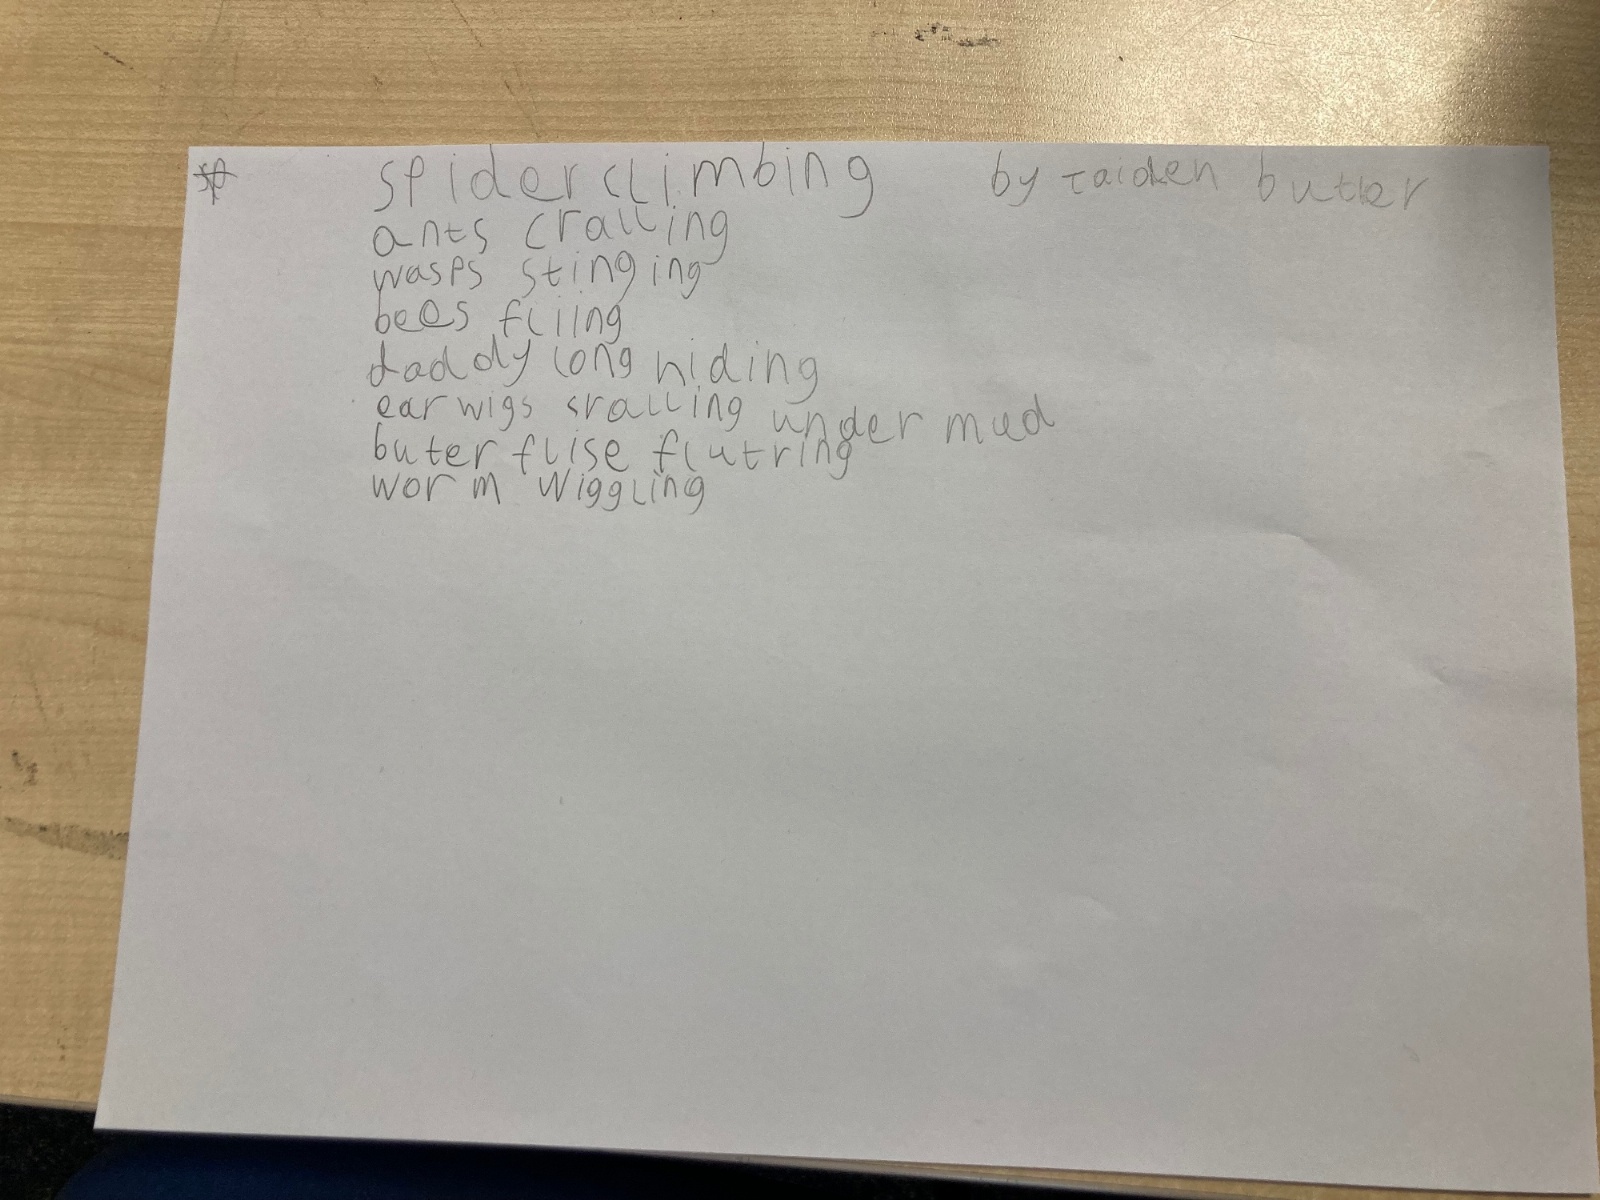 spider climbing by taiden butler
ants cralling
wasps stinging
bees fliing
daddy long hiding
ear wigs sralling under mud
buter flise flutring
worm wiggling